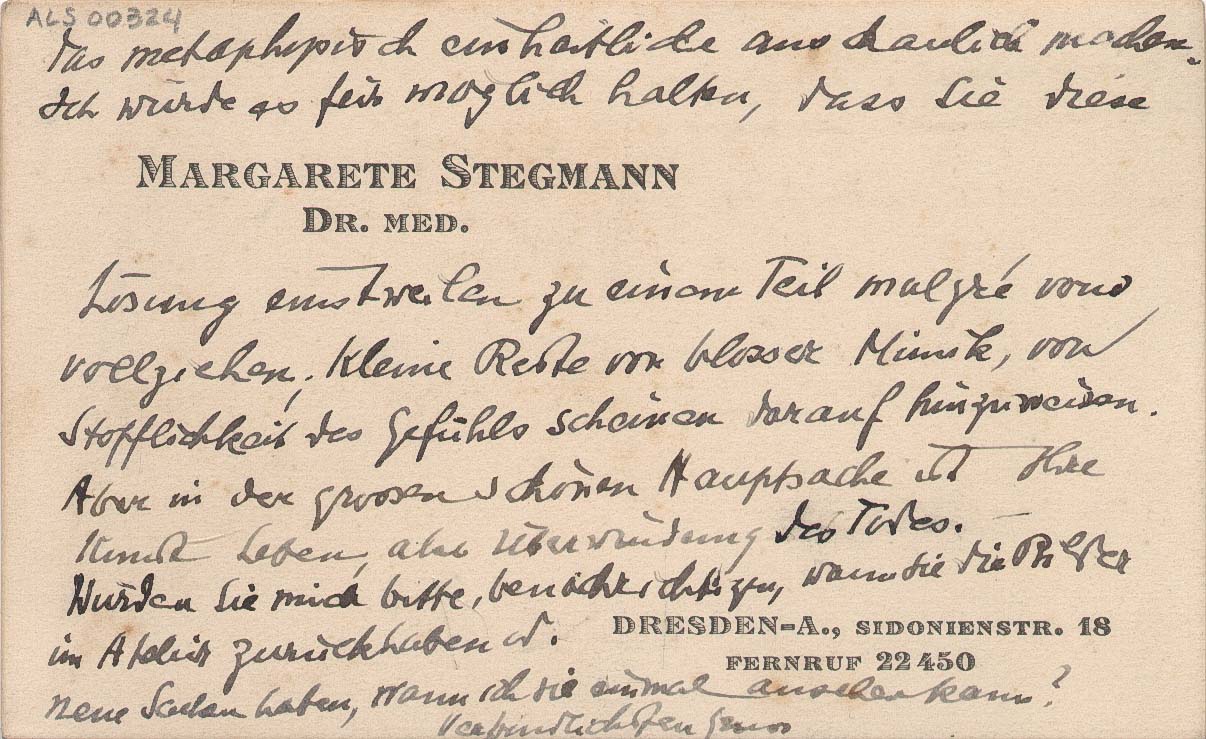 ALS 00324
das metaphysisch einheitliche anschaulich machen.
Ich würde es für möglich halten, dass Sie diese
MARGARETE STEGMANN
DR. MED.
Lösung einstweilen zu einem Teil malgré vous
vollziehen. Kleine Reste von blosser Mimik, von
Stofflichkeit des Gefühls scheinen darauf hinzuweisen.
Aber in der grossen schönen Hauptsache ist Ihre
Kunst Leben, also Überwindung des Todes.
Würden Sie mich bitte, benachrichtigen, wann Sie die Bilder
im Atelier zurückhaben od.
DRESDEN-A., SIDONIENSTR. 18
FERNRUF 22450
neue Sachen haben, wann ich sie einmal ansehen kann?
Verbindlichsten Gruss